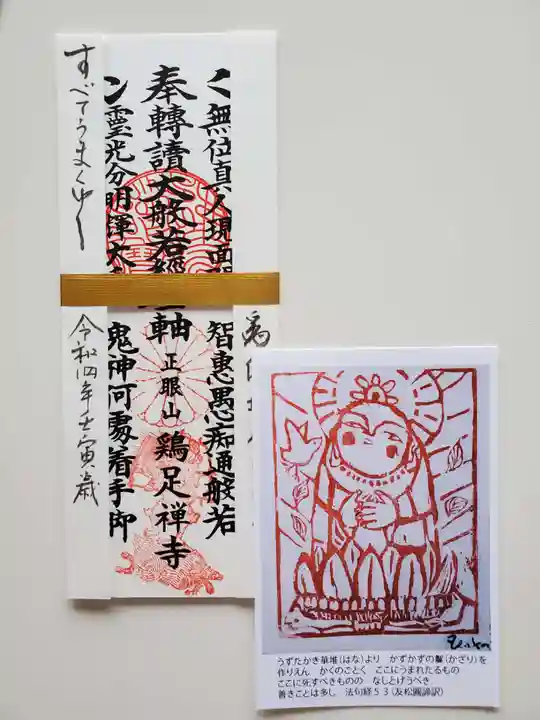 く無位真人現面門
智惠愚癡通般若
奉轉讀大般若經
軸
正眼山 鶏足禅寺
靈光分明輝大
鬼神何處着手卸
すべてうまくゆく
令和四年壬寅歳
うずたかき華堆(はな)より かずかずの鬘(かざり)を
作りえん かくのごとく ここにうまれたるもの
ここに死すべきものの なしとげうべき
善きことは多し 法句経53(友松圓諦訳)